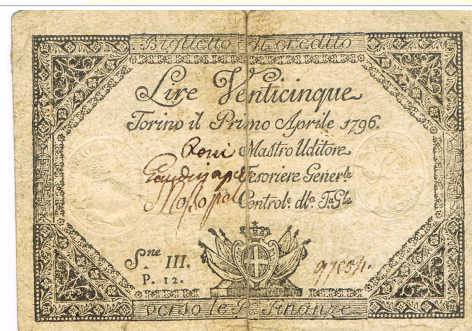 Biglietto di Credito
Lire Venticinque
Torino il Primo Aprile 1796.
Mastro Uditore
Tesoriere Gener.le
Control.e dla T.a G.le
S.ne III.
P. 12.
verso le R.e Finanze